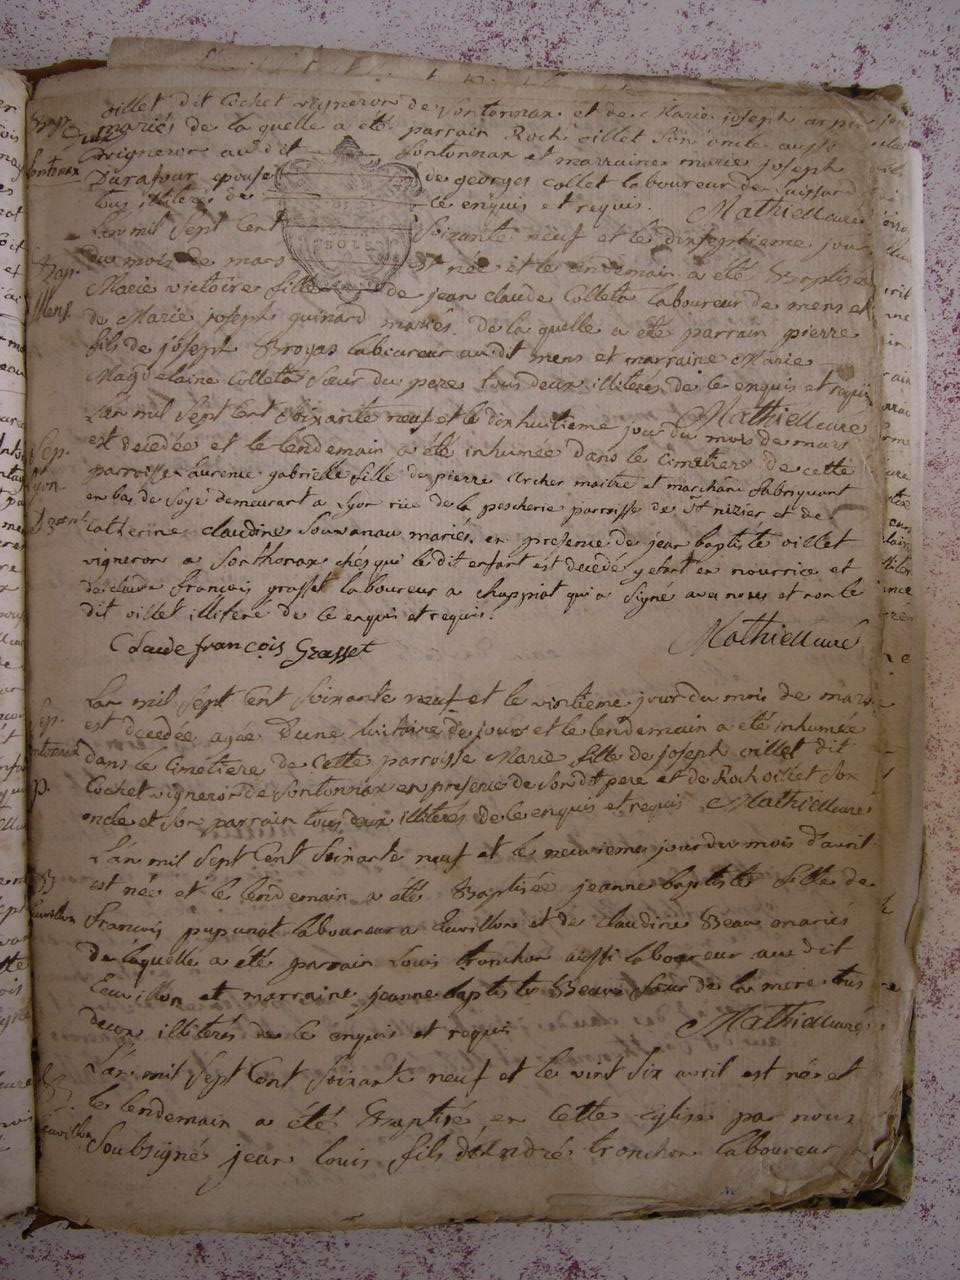 oillet dit Cochet vigneron de Sontonnax et de Marie joseph
Bap. mariés de la quelle a été parrain Roch oillet son oncle aussi
Sontonax vigneron au dit Sontonnax et marraine marie joseph
Durafour epouse de georges Collet laboureur de
tous illiteres de ce enquis et requis. Mathieu curé
L'an mil sept cent soixante neuf et le dixseptieme jour
Bap. du mois de mars est née et le lendemain a été Baptisée
Marie victoire fille de jean claude Colleta laboureur de mens et
Mens. de Marie joseph guinard mariés. de la quelle a été parrain pierre
fils de joseph Broyas laboureur audit mens et marraine Marie
Magdelaine Colleta sœur du pere tous deux illiterés de ce enquis et requis
L'an mil sept cent soixante neuf et le dixhuitieme jour du mois de mars Mathieu curé
Sep. est decedée et le lendemain a été inhumée dans le Cimetiere de cette
Lyon parroisse Laurence gabrielle fille de pierre Archer maitre et marchand fabriquant
en bas de soye demeurant a Lyon rüe de la pescherie parroisse de St nizier et de
Catherine claudine mariés. en presence de jean baptiste oillet
vigneron a Sonthonax chés qui le dit enfant est decedé y etant en nourrice et
de claude françois grasset laboureur a chappiat qui a signé avec nous et non le
dit oillet illiteré de ce enquis et requis.
Claude françois Grasset Mathieu curé
L'an mil sept cent soixante neuf et le vintieme jour du mois de mars
Sep. est decedée agée d'une huitaine de jours et le lendemain a été inhumée
Sontonnax dans le Cimetiere de Cette parroisse Marie fille de joseph oillet dit
p. Cochet vigneron de Sontonnax en presence de son dt pere et de Roch oillet son
oncle et son parrain tous deux illiterés de ce enquis et requis Mathieu curé
L'an mil sept cent soixante neuf et le neuvieme jour du mois d'avril
B est née et le lendemain a été Baptisée jeanne baptiste fille de
françois pupunat laboureur a Euvillon et de claudine Beau mariés
de laquelle a été parrain Louis tronchon aussi laboureur au dit
Euvillon et marraine jeanne baptiste Beau sœur de la mere tous
deux illiterés de ce enquis et requis Mathieu curé
L'an mil sept cent soixante neuf et le vint six avril est né et
B. le lendemain a été Baptisé en cette Eglise par nous
Euvillon soubsigné jean louis fils d'André tronchon laboureur a